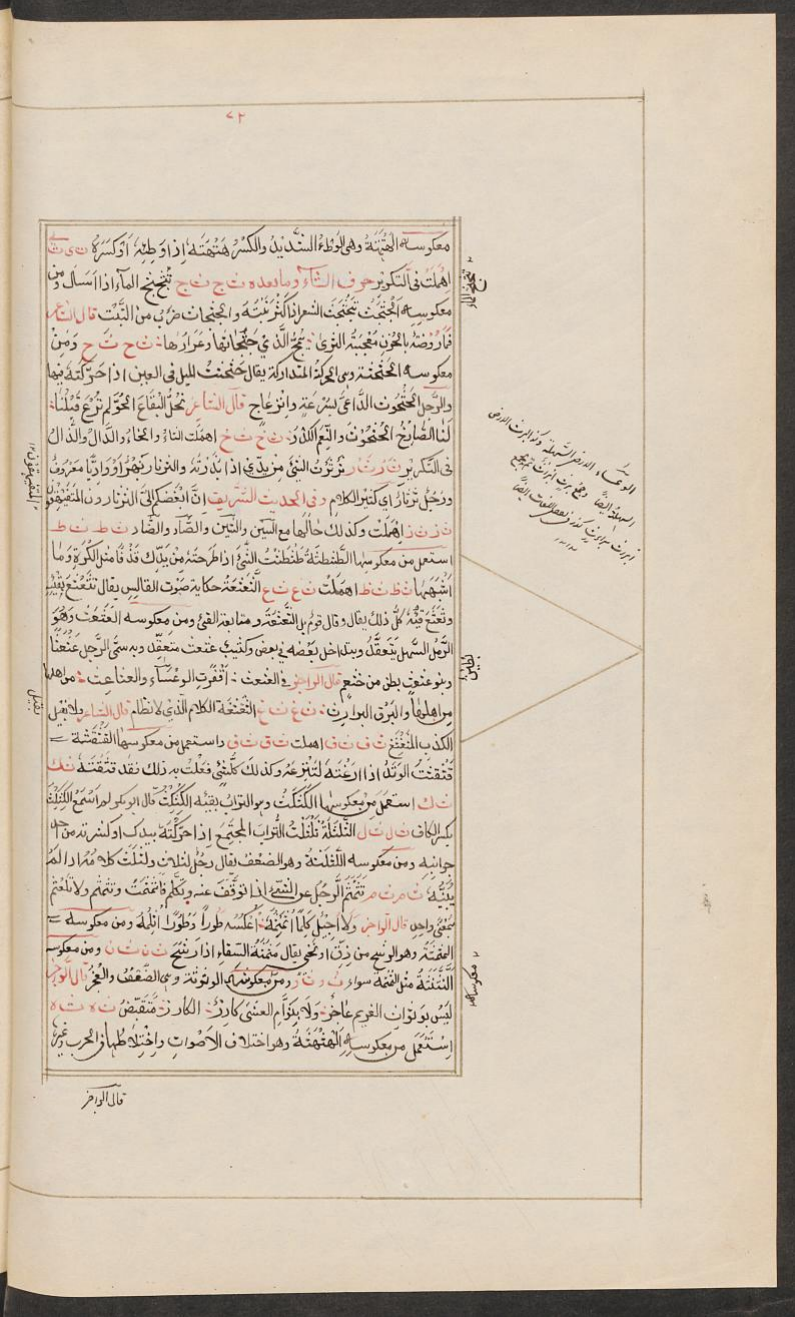 ٧٢
معكوسه الهتهتة وهي الوطء الشديد والكسر هتهته اذا وطئه او كسره ت ى ت
اهملت في التكرير حرف الثاء وما بعده ث ج ث ج ثجثج الماء اذا اسال ومن
معكوسه الجثجثة تجثجث الشعر اذا كثر نبته والجثجاث ضرب من النبت قال الشاعر
فما روضة بالحزن معجبة الثرى يمج الندى جثجاثها وعرارها ث ح ث ح ومن
معكوسه الحثحثة وهي الحركة المتداركة يقال حثحثت الميل في العين اذا حركته فيها
والرجل الحثحوث الداعي بسرعة وانزعاج قال الشاعر نحل البقاع الحو لم ترع قبلنا
لنا الصارخ الحثحوث والنعم الكدر ث خ ث خ اهملت الثاء والخاء والدال والذال
في التكرير ث ر ث ر ثرثرت الشئ من يدي اذا بذرته والثرثار نهر او واد معروف
ورجل ثرثار اي كثير الكلام وفي الحديث الشريف ان ابغضكم الي الثرثارون المتفيهقون
ث ز ث ز اهملت وكذلك حالها مع السين والشين والصاد والضاد ث ط ث ط
استعمل من معكوسها الطثطثة طثطثت الشئ اذا طرحته من يدك قذفا مثل الكرة وما
اشبهها ث ظ ث ظ اهملت ث ع ث ع الثعثعة حكاية صوت القالس يقال تثعثع بقيئه
وثعثع قيئه كل ذلك يقال وقال قوم بل الثعثعة متابعة القئ ومن معكوسه العثعث وهو
الرمل السهل يتعقد ويتداخل بعضه في بعض وكثيب عثعث متعقد وبه سمي الرجل عثعثا
وبنو عثعث بطن من خثعم قال الراجز في العثعث اقفرت الوعساء والعثاعث من اهلها
من اهلها والبرق البوارث ث غ ث غ الثغثغة الكلام الذي لا نظام قال الشاعر ولا بقيل
الكذب المثغثغ ث ف ث ف اهملت ث ق ث ق واستعمل من معكوسها القثقثة
قثقثت الوتد اذا ارغته لتنزعه وكذلك كل شئ فعلت به ذلك فقد قثقثته ث ك
ث ك استعمل من معكوسها الكثكث وهو التراب بقيه الكثكث قال ابو بكر لم اسمع الكثكث
بكسر الكاف ث ل ث ل الثلثلة ثلثلت التراب المجتمع اذا حركته بيدك او كسرته من احد
جوانبه ومن معكوسه اللثلثة وهو الضعف يقال رجل لثلاث ولثلث كلامه اذا لم
يبينه ث م ث م تثمثم الرجل عن الشئ اذا توقف عنه وتكلم فما تمتم وتثمثم ولا تلعثم
بمعنى واحد قال الراجز
المثمثة وهو الرشح من زق او نحي يقال مثمثة السقاء اذا رشح ث ن ث ن ومن معكوسه
النثنثة مثل المثمثة سواء ث و ث و ومن معكوسه الوثوثة وهي الضعف والعجز قال الراجز
ليس بوثواث الغريم عاجز ولا بنوام العشي كارز الكارز متقبض ث ه ث ه
استعمل من معكوسه الهثهثة وهو اختلاف الاصوات واختلاطها في الحرب وغيرها
قال الراجز
المتفيهقون
بقيل
بطن
معكوسه